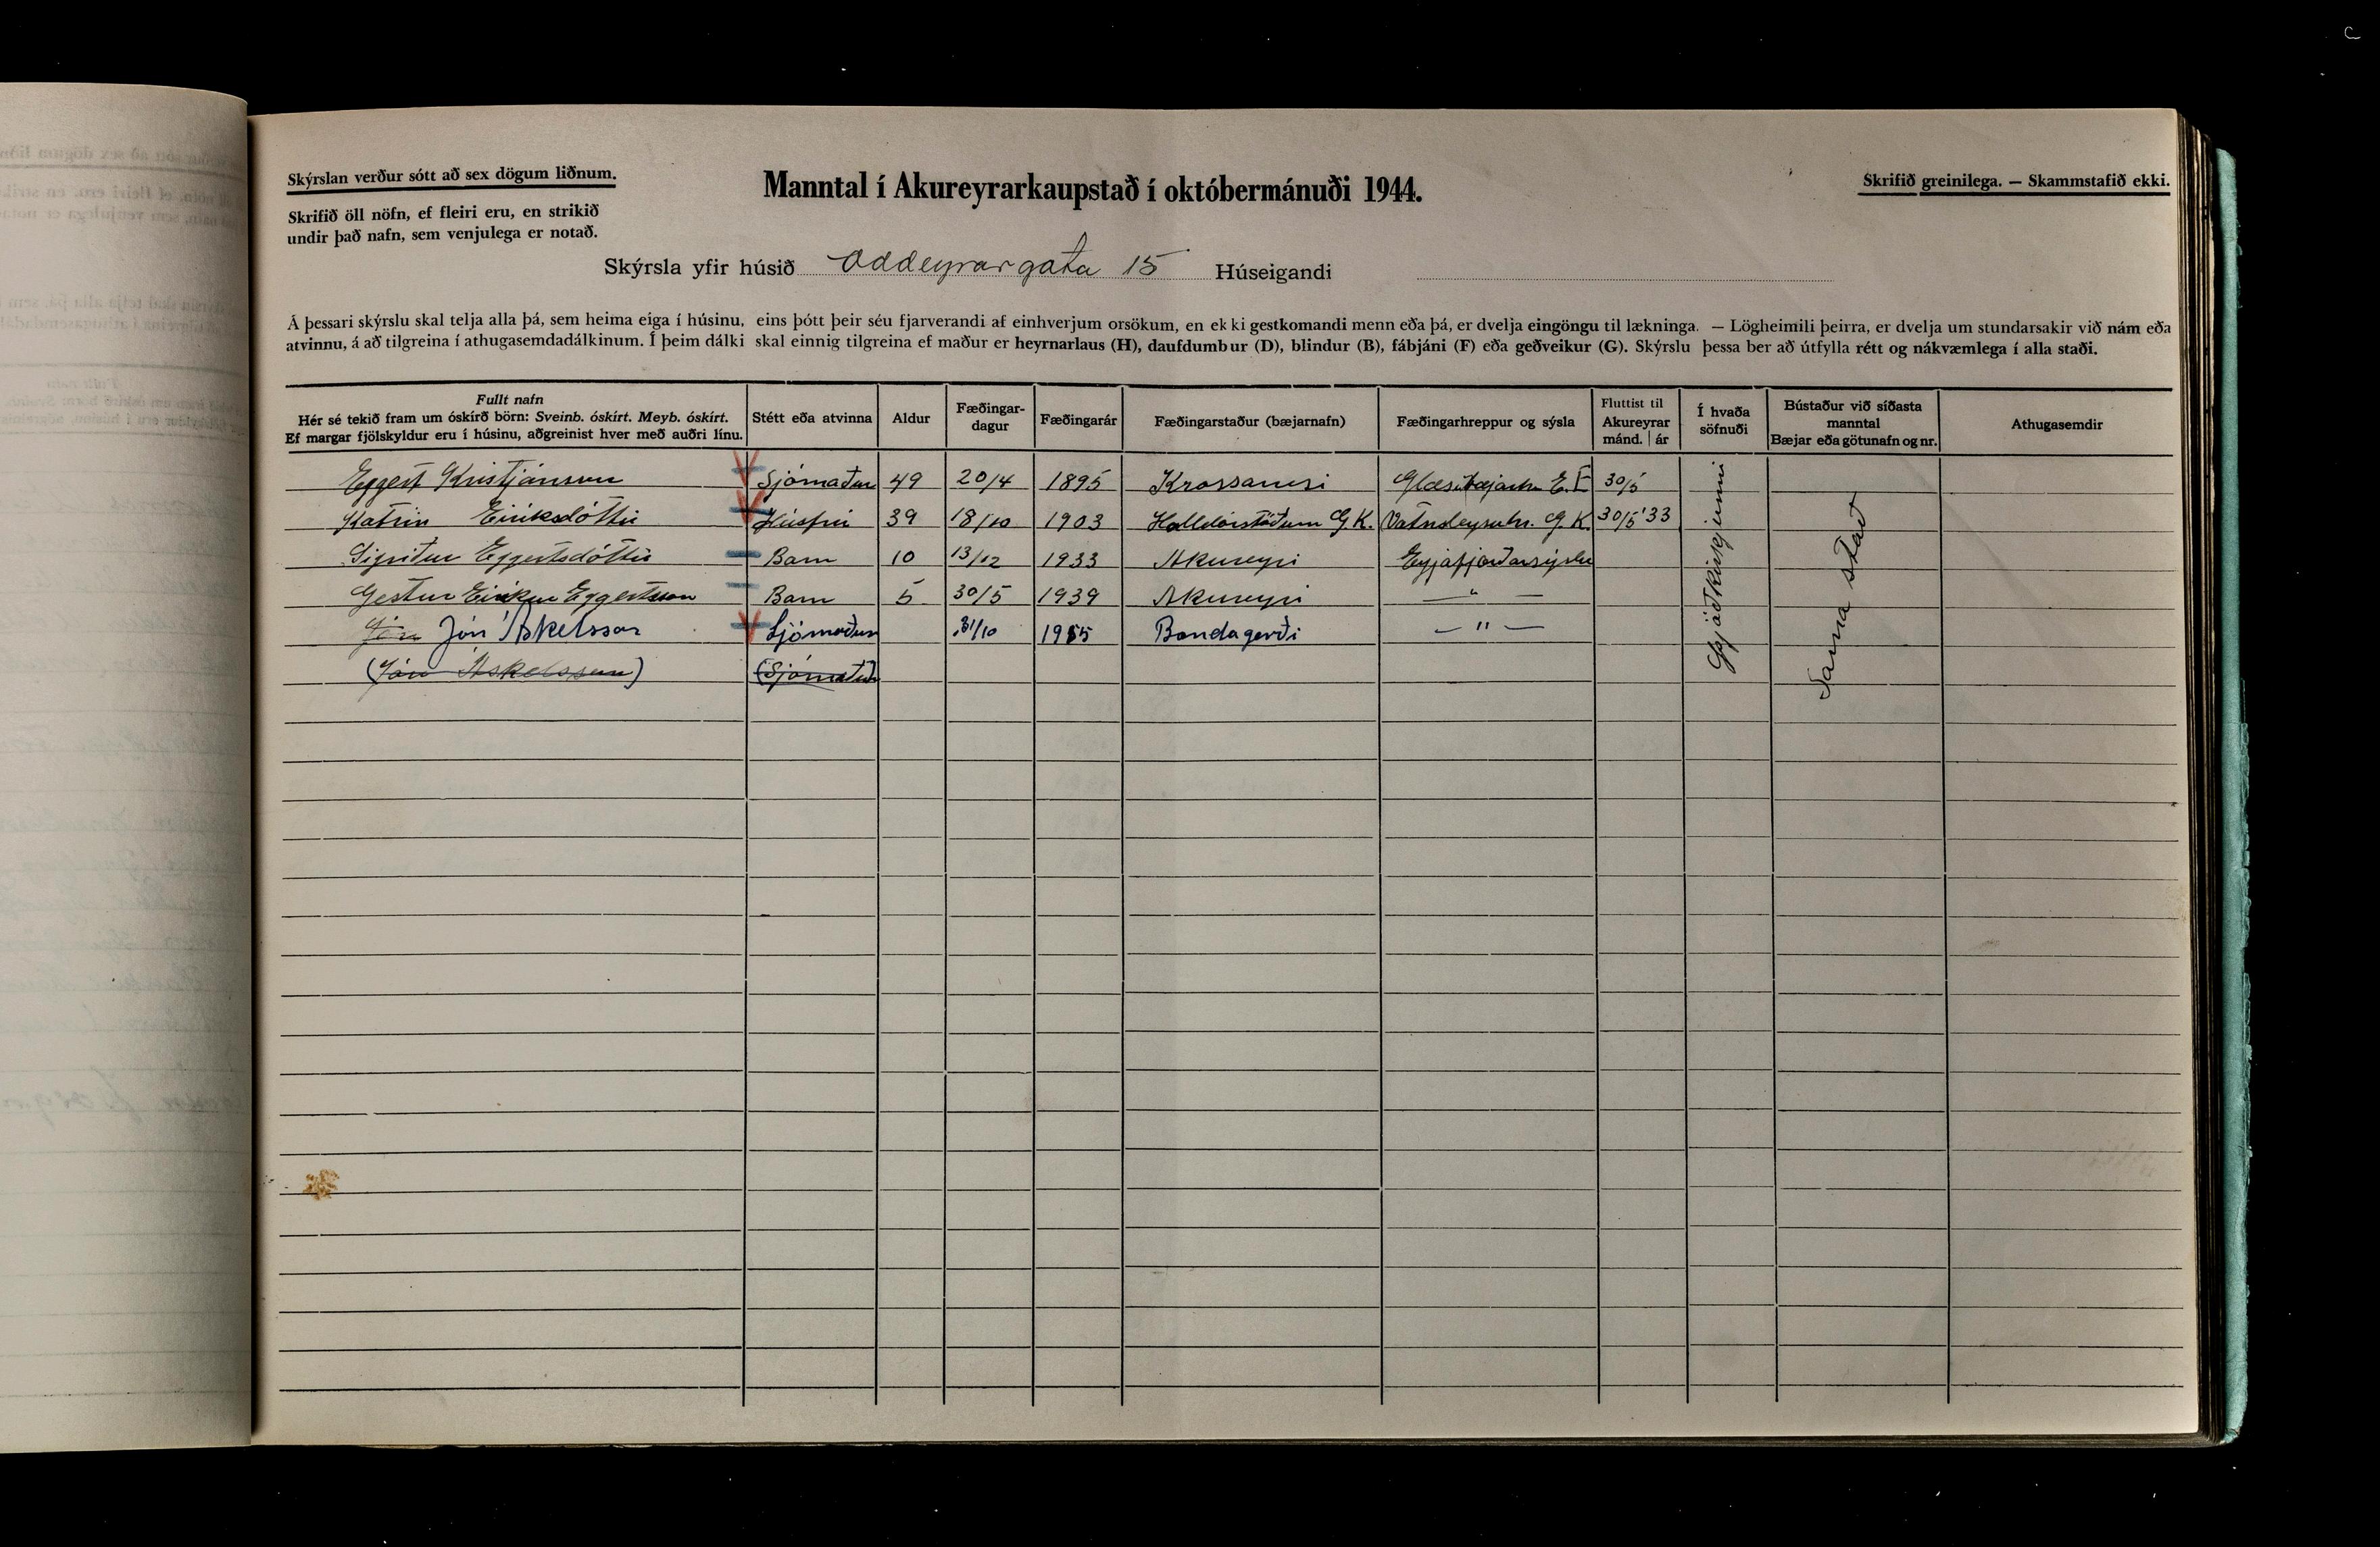 Skýrslan verður sótt að sex dögum liðnum.
Manntal í Akureyrarkaupstað í októbermánuði 1944.
Skrifið greinilega. — Skammstafið ekki.
Skrifið öll nöfn, ef fleiri eru, en strikið
undir það nafn, sem venjulega er notað.
Skýrsla yfir húsið Oddeyrargata 15 Húseigandi
Á þessari skýrslu skal telja alla þá, sem heima eiga í húsinu, eins þótt þeir séu fjarverandi af einhverjum orsökum, en ekki gestkomandi menn eða þá, er dvelja eingöngu til lækninga. — Lögheimili þeirra, er dvelja um stundarsakir við nám eða
atvinnu, á að tilgreina í athugasemdadálkinum. Í þeim dálki skal einnig tilgreina ef maður er heyrnarlaus (H), daufdumbur (D), blindur (B), fábjáni (F) eða geðveikur (G). Skýrslu þessa ber að útfylla rétt og nákvæmlega í alla staði.
Fullt nafn
Hér sé tekið fram um óskírð börn: Sveinb. óskírt. Meyb. óskírt.
Ef margar fjölskyldur eru í húsinu, aðgreinist hver með auðri línu.
Stétt eða atvinna
Aldur
Fæðingar-
dagur
Fæðingarár
Fæðingarstaður (bæjarnafn)
Fæðingarhreppur og sýsla
Fluttist til
Akureyrar
mánd. | ár
Í hvaða
söfnuði
Bústaður við síðasta
manntal
Bæjar eða götunafn og nr.
Athugasemdir
Eggert Kristjánsson Sjómaður 49 20/4 1895 Krossanesi 30/5
Katrín Eiríksdóttir Húsfrú 39 18/10 1903 Halldórstöðum G.K. Vatnsleysuhr. G.K. 30/5'33
Sigríður Eggertsdóttir Barn 10 13/12 1933 Akureyri Eyjafjarðarsýslu
Gestur Eiríkur Eggertsson Barn 5 30/5 1939 Akureyri — " —
Jón Jón Áskelsson Sjómaður 31/10 1915 Bandagerði — " —
(Jón Áskelsson) (Sjómaður)
Þjóðkirkjunni
Sama stað